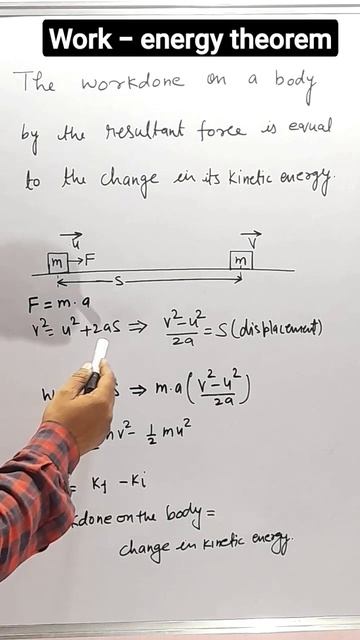 Work – energy theorem
The workdone on a body
by the resultant force is equal
to the change in its kinetic energy.
u v
m F m
S
F = m·a
v² = u² + 2as ⇒ v²-u²/2a = S (displacement)
⇒ m·a (v²-u²/2a)
v² - ½ mu²
= Kf - Ki
done on the body =
change in kinetic energy.